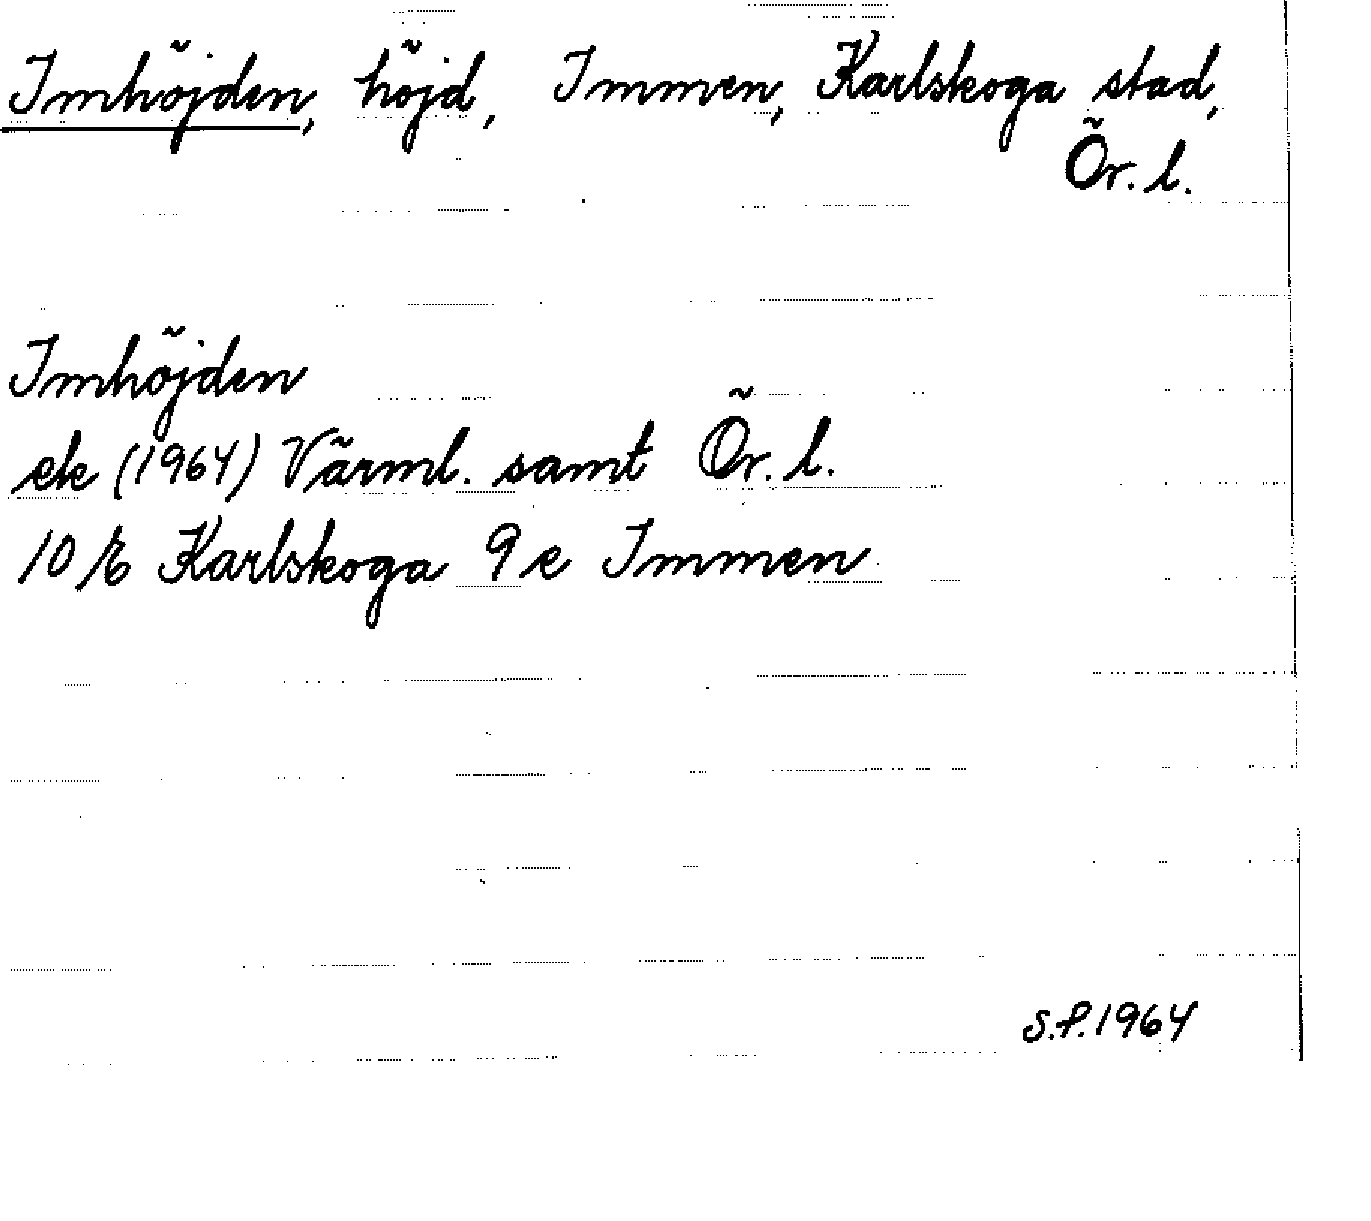 Imhöjden, höjd, Immen, Karlskoga stad,
Ör. l.
Imhöjden
ek (1964) Värml. samt Ör. l.
10 E Karlskoga 9 e Immen
S.P. 1964